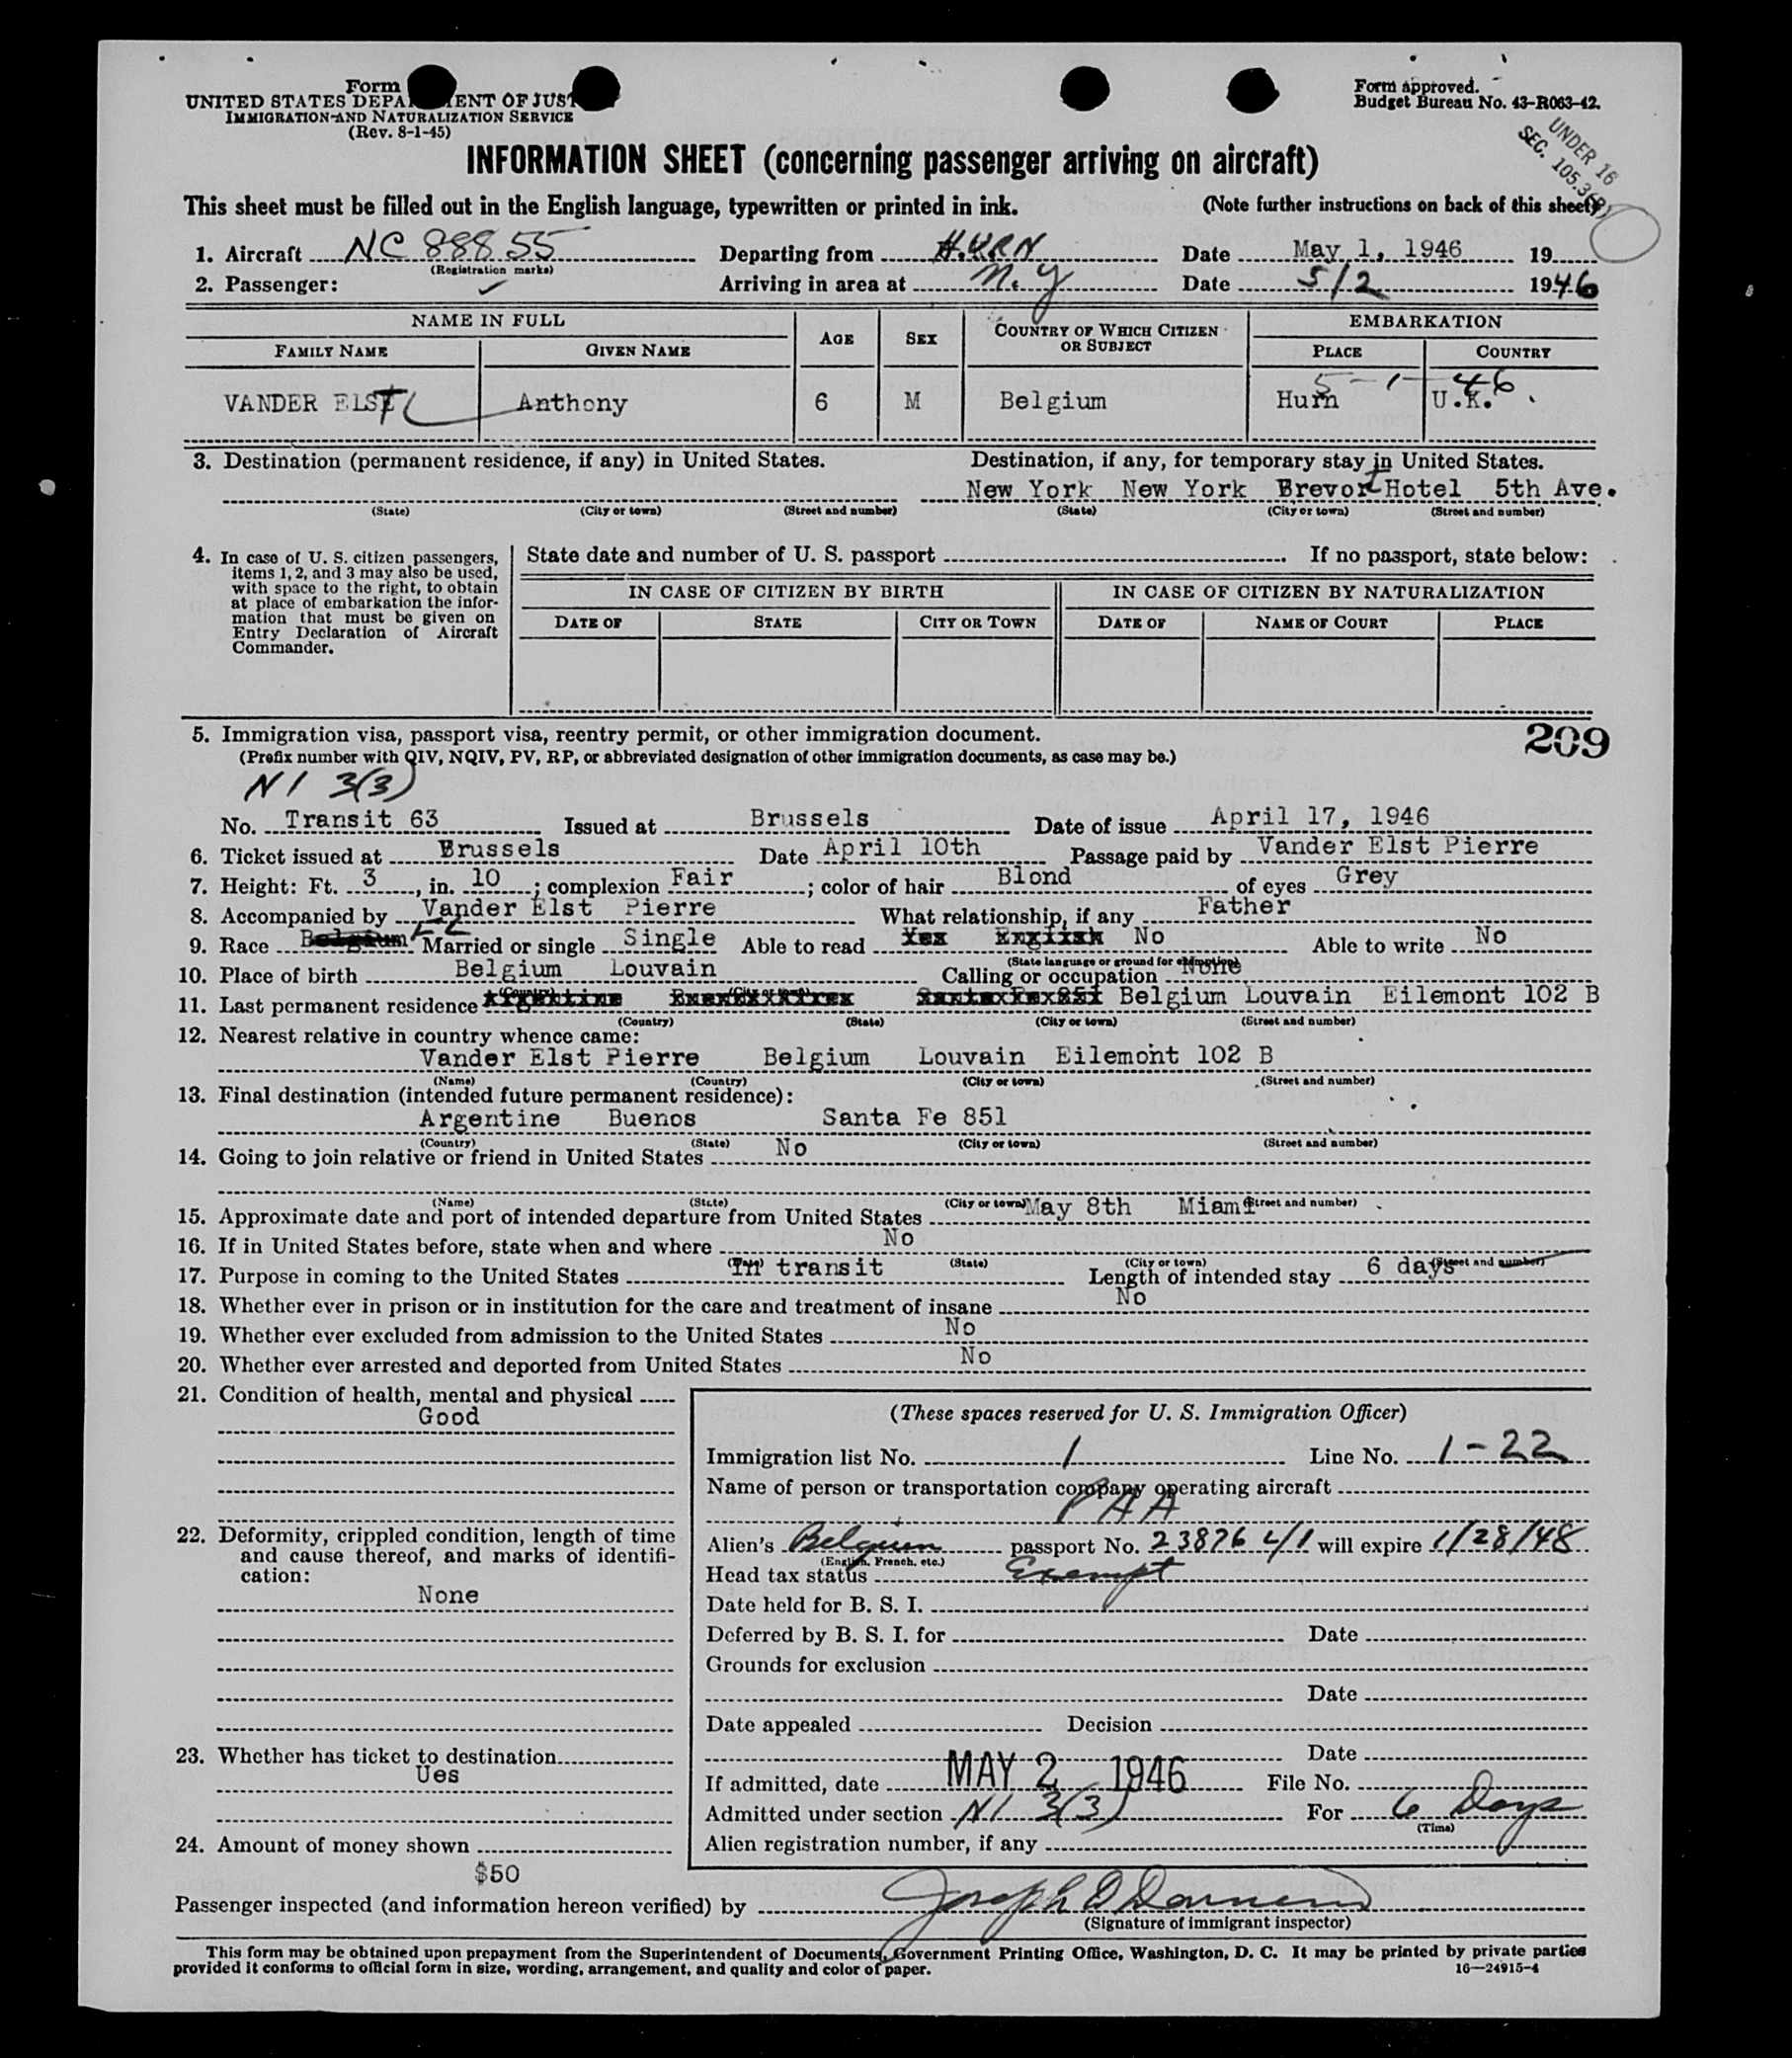 Form
UNITED STATES DEPA ENT OF JUST
IMMIGRATION AND NATURALIZATION SERVICE
(Rev. 8-1-45)
Form approved.
Budget Bureau No. 43-R063-42.
UNDER 16
SEC. 105.3
INFORMATION SHEET (concerning passenger arriving on aircraft)
This sheet must be filled out in the English language, typewritten or printed in ink. (Note further instructions on back of this sheet)
1. Aircraft NC 88855 Departing from HURN Date May 1, 1946 19
(Registration marks)
2. Passenger: Arriving in area at N.Y Date 5/2 1946
NAME IN FULL AGE SEX COUNTRY OF WHICH CITIZEN OR SUBJECT EMBARKATION
FAMILY NAME GIVEN NAME PLACE COUNTRY
5-1-46
VANDER ELST Anthony 6 M Belgium Hurn U.K.
3. Destination (permanent residence, if any) in United States. Destination, if any, for temporary stay in United States.
New York New York Brevort Hotel 5th Ave.
(State) (City or town) (Street and number) (State) (City or town) (Street and number)
4. In case of U. S. citizen passengers,
items 1, 2, and 3 may also be used,
with space to the right, to obtain
at place of embarkation the infor-
mation that must be given on
Entry Declaration of Aircraft
Commander.
State date and number of U. S. passport If no passport, state below:
IN CASE OF CITIZEN BY BIRTH IN CASE OF CITIZEN BY NATURALIZATION
DATE OF STATE CITY OR TOWN DATE OF NAME OF COURT PLACE
5. Immigration visa, passport visa, reentry permit, or other immigration document. 209
(Prefix number with QIV, NQIV, PV, RP, or abbreviated designation of other immigration documents, as case may be.)
N I 3(3)
No. Transit 63 Issued at Brussels Date of issue April 17, 1946
6. Ticket issued at Brussels Date April 10th Passage paid by Vander Elst Pierre
7. Height: Ft. 3, in. 10; complexion Fair; color of hair Blond of eyes Grey
8. Accompanied by Vander Elst Pierre What relationship, if any Father
9. Race Belgium Married or single Single Able to read Yes English No Able to write No
(State language or ground for exemption)
10. Place of birth Belgium Louvain Calling or occupation None
(Country) (City or town)
11. Last permanent residence Argentine Belgium Louvain Eilemont 102 B
(Country) (State) (City or town) (Street and number)
12. Nearest relative in country whence came:
Vander Elst Pierre Belgium Louvain Eilemont 102 B
(Name) (Country) (City or town) (Street and number)
13. Final destination (intended future permanent residence):
Argentine Buenos Santa Fe 851
(Country) (State) (City or town) (Street and number)
14. Going to join relative or friend in United States No
(Name) (State) (City or town) (Street and number)
15. Approximate date and port of intended departure from United States May 8th Miami
16. If in United States before, state when and where No
(Date) (State) (City or town) (Street and number)
17. Purpose in coming to the United States In transit Length of intended stay 6 days
18. Whether ever in prison or in institution for the care and treatment of insane No
19. Whether ever excluded from admission to the United States No
20. Whether ever arrested and deported from United States No
21. Condition of health, mental and physical
Good
22. Deformity, crippled condition, length of time
and cause thereof, and marks of identifi-
cation:
None
23. Whether has ticket to destination
Ues
24. Amount of money shown
$50
(These spaces reserved for U. S. Immigration Officer)
Immigration list No. 1 Line No. 1-22
Name of person or transportation company operating aircraft
PAA
Alien's Belgium passport No. 23876 4/1 will expire 1/28/48
(English, French, etc.)
Head tax status Exempt
Date held for B. S. I.
Deferred by B. S. I. for Date
Grounds for exclusion
Date
Date appealed Decision
Date
If admitted, date MAY 2 1946 File No.
Admitted under section NI 3(3) For 6 Days
(Time)
Alien registration number, if any
Passenger inspected (and information hereon verified) by Joseph
(Signature of immigrant inspector)
This form may be obtained upon prepayment from the Superintendent of Documents, Government Printing Office, Washington, D. C. It may be printed by private parties
provided it conforms to official form in size, wording, arrangement, and quality and color of paper. 16—24915-4